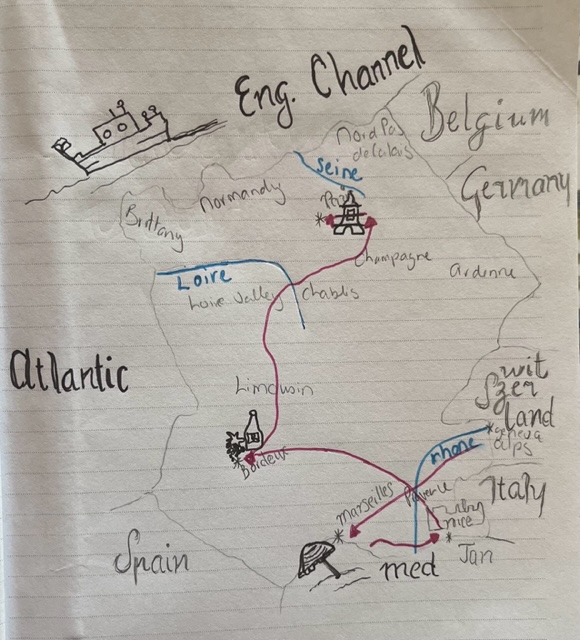 Eng. Channel
Belgium
Nord Pas
de Calais
Seine
Germany
Normandy
Paris
Brittany
Champagne
Ardenne
Loire
Loire Valley
Chablis
Atlantic
Limousin
Swit
zer
land
geneva
alps
Bordeux
rhone
Italy
Marseilles
nice
Spain
med
Jan